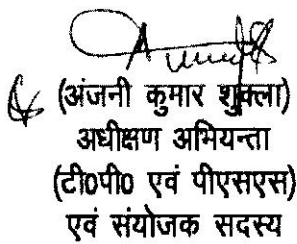 (अंजनी कुमार शुक्ला)
अधीक्षण अभियन्ता
(टी0पी0 एवं पीएसएस)
एवं संयोजक सदस्य